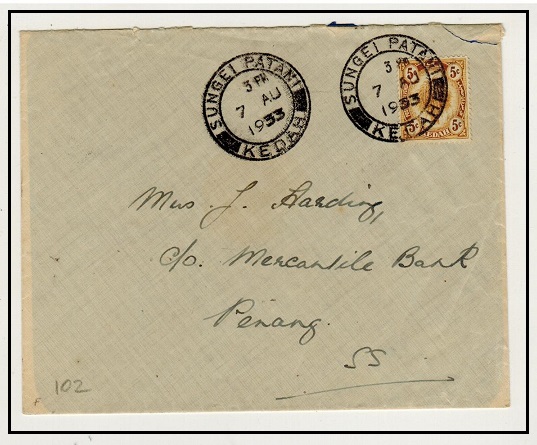 SUNGEI PATANI
3 PM
7 AU
1933
KEDAH
SUNGEI PATANI
3 PM
7 AU
1933
KEDAH
5c 5c
5c 5c
KEDAH
Mrs J. Harding,
c/o. Mercantile Bank
Penang.
SS
102